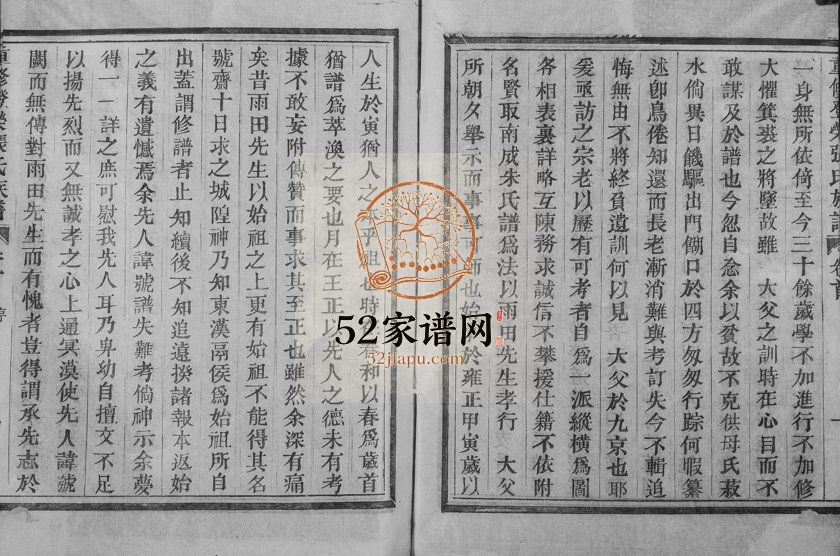 一身無所依倚至今三十餘歲學不加進行不加修
大懼箕裘之將墜故雖 大父之訓時在心目而不
敢謀及於譜也今忽自念余以貧故不克供母氏菽
水倘異日饑驅出門餬口於四方匆匆行踪何暇纂
述卽鳥倦知還而長老漸消難與考訂失今不輯追
悔無由不將終負遺訓何以見 大父於九京也耶
爰亟訪之宗老以歷有可考者自爲一派縱橫爲圖
各相表裏詳略互陳務求誠信不攀援仕籍不依附
名賢取南成朱氏譜爲法以雨田先生孝行 大父
所朝夕舉示而事 可師也始 於雍正甲寅歲以
人生於寅猶人之 乎祖也時 春 和以春爲歲首
猶譜爲萃渙之要也月在王正以先人之德未有考
據不敢妄附傳贊而事求其至正也雖然余深有痛
矣昔雨田先生以始祖之上更有始祖不能得其名
號齋十日求之城隍神乃知東漢鬲侯爲始祖所自
出蓋謂修譜者止知續後不知追遠揆諸報本返始
之義有遺憾焉余先人諱號譜失難考倘神示余夢
得一一詳之庶可慰我先人耳乃卑幼自擅文不足
以揚先烈而又無誠孝之心上通冥漠使先人諱號
闕而無傳對雨田先生而有愧者豈得謂承先志於
52家谱网
52jiapu.com